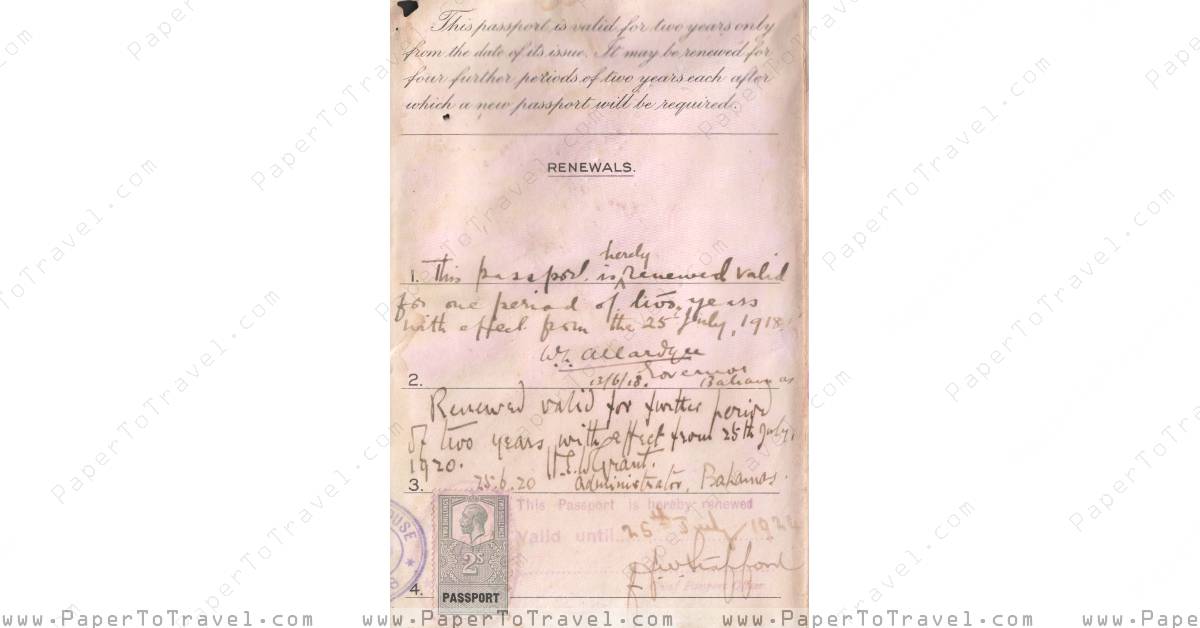 This passport is valid for two years only
from the date of its issue. It may be renewed for
four further periods of two years each after
which a new passport will be required.
RENEWALS.
hereby
1. This passport is renewed valid
for one period of two years
with effect from the 25th July, 1918.
W. L. Allardyce
13/6/18. Governor Bahamas
2.
Renewed valid for further period
of two years with effect from 25th July,
1920.
25.6.20 Administrator, Bahamas.
3.
This Passport is hereby renewed
Valid until 25th July
2S
PASSPORT
4.
www.PaperToTravel.com